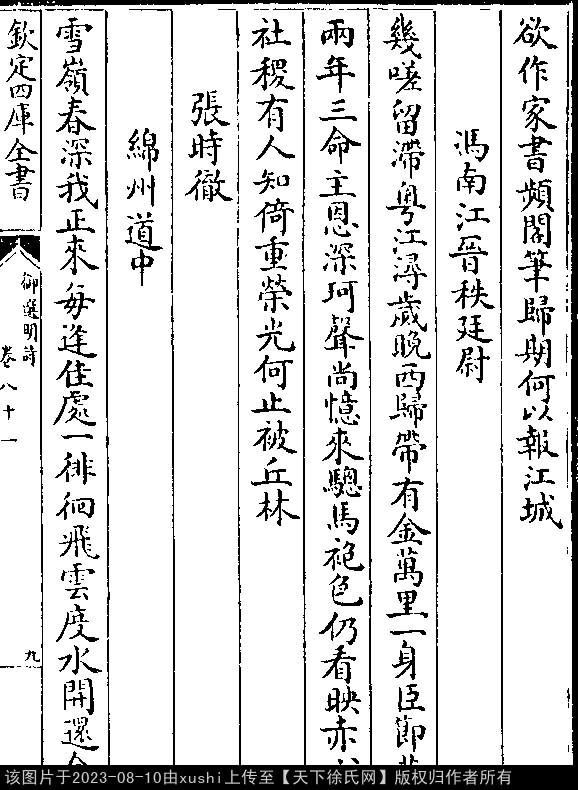 欲作家書頻閣筆歸期何以報江城
馮南江晉秩廷尉
幾嗟留滯粵江潯歲晚西歸帶有金萬里一身臣節
兩年三命主恩深珂聲尚憶來驄馬袍色仍看映赤
社稷有人知倚重榮光何止被丘林
張時徹
綿州道中
雪嶺春深我正來每逢佳處一徘徊飛雲度水開還
欽定四庫全書
御選明詩
卷八十一
九
该图片于2023-08-10由xushi上传至【天下徐氏网】版权归作者所有